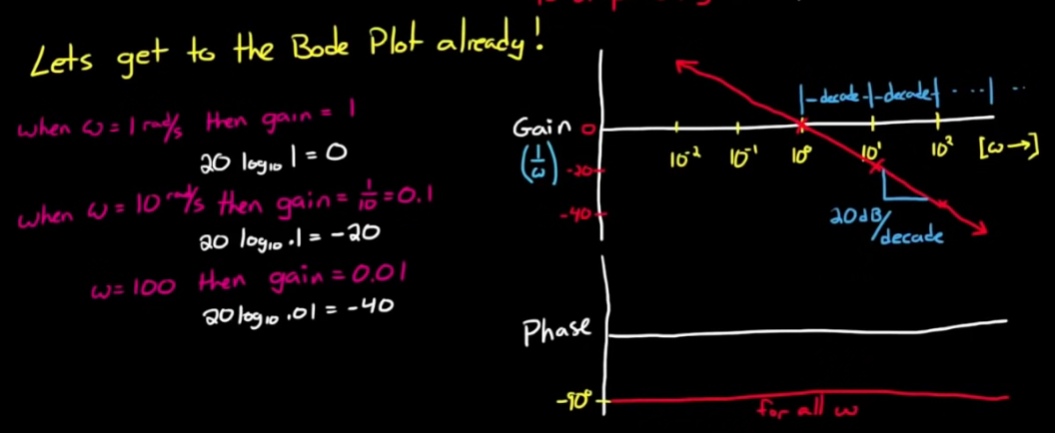 Lets get to the Bode Plot already!
when ω = 1 rad/s then gain = 1
20 log₁₀ 1 = 0
when ω = 10 rad/s then gain = 1/10 = 0.1
20 log₁₀ .1 = -20
ω = 100 then gain = 0.01
20 log₁₀ .01 = -40
|-decade-|-decade-| ...| ..
Gain 0
(1/ω) -20
-40
10⁻² 10⁻¹ 10⁰ 10¹ 10² [ω→]
20 dB/
decade
Phase
-90°
for all ω